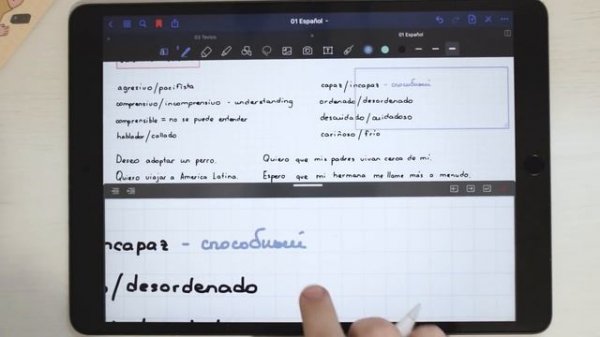 01 Español
01 Español
agresivo/pacifista
comprensivo/incomprensivo - understanding
comprensible = no se puede entender
hablador/callado
capaz/incapaz - способный
ordenado/desordenado
descuidado/cuidadoso
cariñoso/frío
Deseo adoptar un perro.
Quiero viajar a America Latina.
Quiero que mis padres vivan cerca de mi.
Espero que mi hermana me llame más a menudo.
ncapaz - способный
o/desordenado